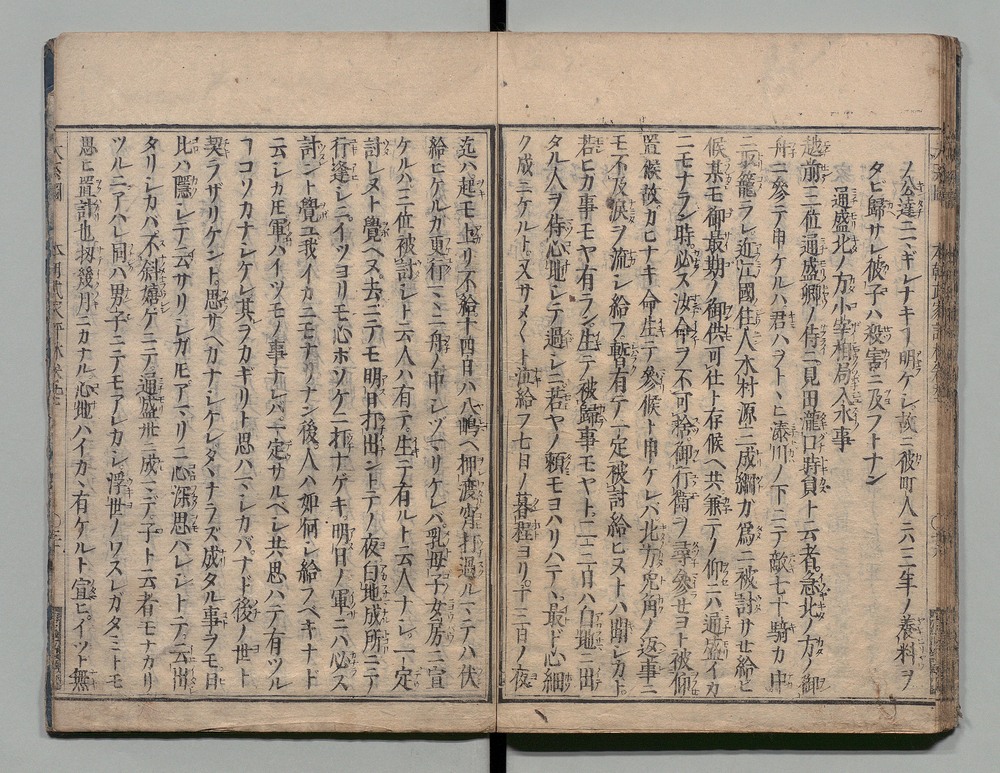 ノ公達ニマギレナキヿ明ケシ故ニ彼町人六三年ノ養料ヲ
タヒ歸サレ彼子ハ殺害ニ及フトナン
通盛北ノ方小宰相局入水事
越前三位通盛卿ノ侍ニ見田瀧口時員ト云者急北ノ方ノ御
舟ニ參テ申ケルハ君ハヲトヽヒ湊川ノ下ニテ敵七十騎カ中
ニ取籠ラレ近江國住人木村源三成綱カ爲ニ被討サセ給ヒ
候某モ御最期ノ御供可仕ト存候ヘ共兼テノ仰ニハ通盛イカ
ニモナラン時必ス汝命ヲ不可捨御行衞ヲ尋參セヨト被仰
置候故カヒナキ命生テ參候ト申ケレバ北方兎角ノ返事ニ
モ不及涙ヲ流シ給フ暫有テ一定被討給ヒヌトハ聞シカト
若ヒカ事モヤ有ラン生テ被歸事モヤト二三日ハ白地ニ出
タル人ヲ侍心地シテ過シニ若ヤノ頼モヨハリハテヽ最ド心細
ク成ニケルト又サメ〱ト泣給フ七日ノ暮程ヨリ十三日ノ夜
迄ハ起モ上リ不給十四日ハ八嶋ヘ押渡宵打過ルマテハ伏
給ヒケルカ更行マヽニ舟ノ中シツマリケレバ乳母子女房ニ宣
ケルハ三位被討シト云人ハ有テ生テ有ルト云人ナシ一定
討レヌト覺ヘヌ去ニテモ明日打出ントテノ夜白地成所ニテ
行逢シニイツヨリモ心ボソケニ打ナゲキ明日ノ軍ニハ必ス
討ント覺ユ我イカニモナリナン後人ハ如何シ給フベキナド
云シカ𪜈軍ハイツモノ事ナレバ一定サルヘシ共思ハテ有ツル
ヿコソカナシケレ其ヲカギリト思ハマシカバナド後ノ世ト
契ラザリケント思サヘカナシケレタヾナラズ成タル事ヲモ日
比ハ隱シテ云サリシガ𪜈アマリニ心深思ハレシトテ云出
タリシカバ不斜嬉ゲニテ通盛卅ニ成マデ子ト云者モナカリ
ツルニアハレ同ハ男子ニテモアレカシ浮世ノワスレガタミトモ
思ヒ置計也扨幾月ニカナル心地ハイカヽ有ケルト宣ヒイツト無